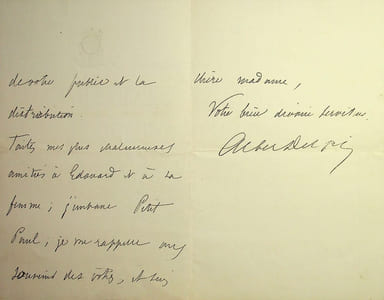 de votre public et la
distribution.
Toutes mes plus
amitiés à Edouard et à sa
femme; j'embrasse Petit
Paul; je me rappelle aux
souvenirs des vôtres, et suis
chère madame,
Votre bien dévoué serviteur
Albert Delpit